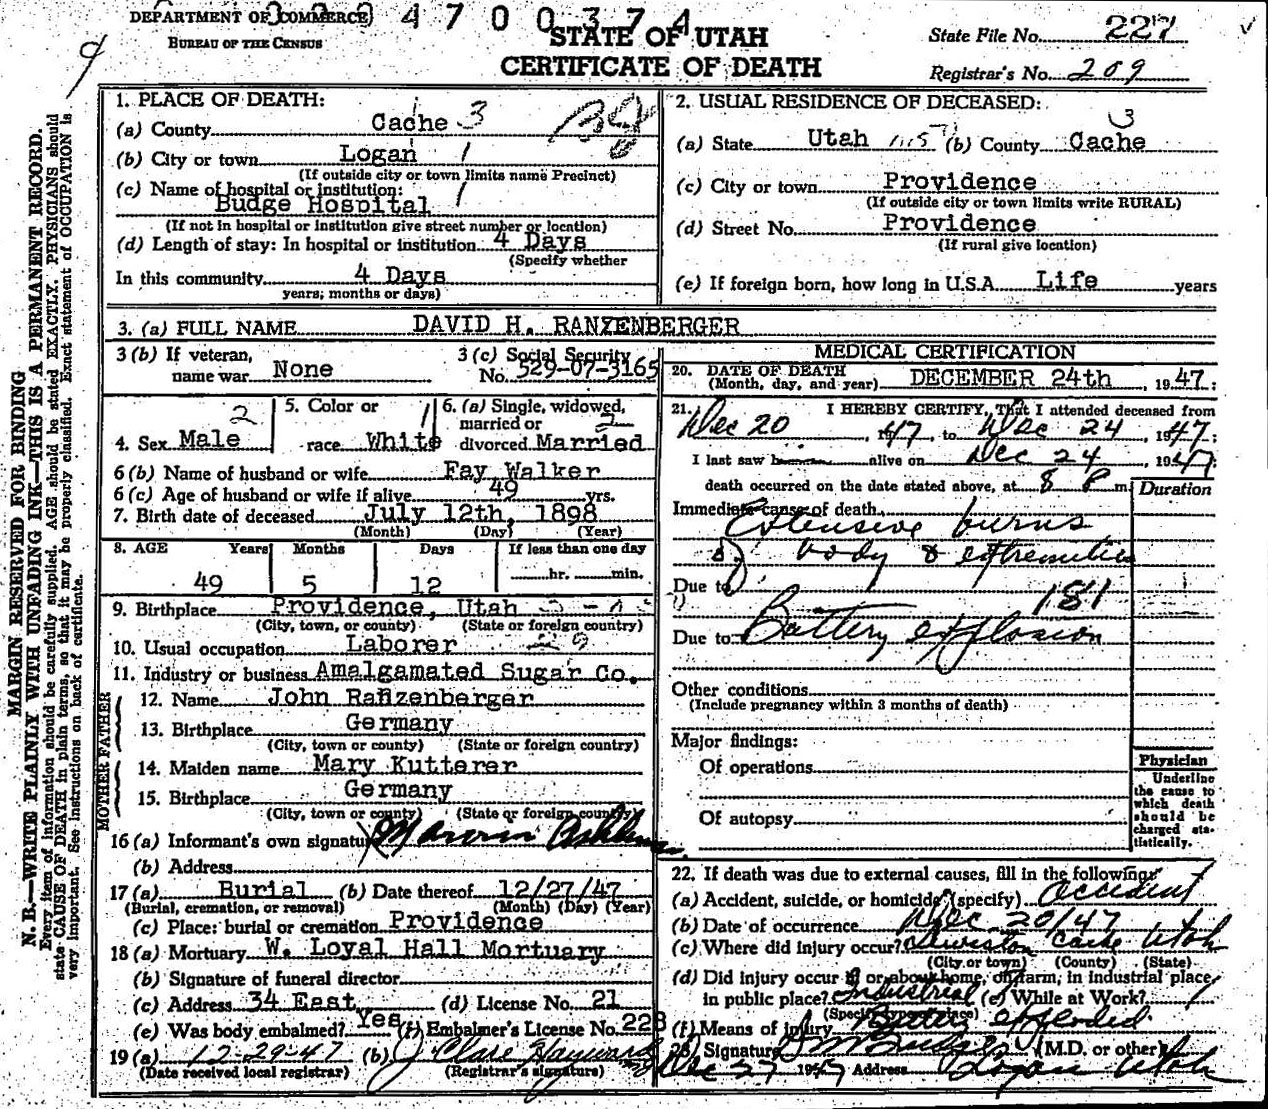 DEPARTMENT OF COMMERCE
BUREAU OF THE CENSUS
4 7 0 0 3 7 4
STATE OF UTAH
CERTIFICATE OF DEATH
State File No. 227
Registrar's No. 209
MARGIN RESERVED FOR BINDING
N. B.—WRITE PLAINLY WITH UNFADING INK—THIS IS A PERMANENT RECORD.
Every item of information should be carefully supplied. AGE should be stated EXACTLY. PHYSICIANS should
state CAUSE OF DEATH in plain terms, so that it may be properly classified. Exact statement of OCCUPATION is
very important. See instructions on back of certificate.
1. PLACE OF DEATH:
(a) County Cache 3
(b) City or town Logan 1
(If outside city or town limits name Precinct)
(c) Name of hospital or institution:
Budge Hospital 1
(If not in hospital or institution give street number or location)
(d) Length of stay: In hospital or institution 4 Days
(Specify whether
In this community 4 Days
years, months or days)
2. USUAL RESIDENCE OF DECEASED:
3
(a) State Utah (b) County Cache
(c) City or town Providence
(If outside city or town limits write RURAL)
(d) Street No. Providence
(If rural give location)
(e) If foreign born, how long in U.S.A. Life years
3. (a) FULL NAME DAVID H. RANZENBERGER
3 (b) If veteran, name war None
3 (c) Social Security No. 529-07-3165
4. Sex Male 2
5. Color or race White 1
6. (a) Single, widowed, married or divorced Married 2
6 (b) Name of husband or wife Fay Walker
6 (c) Age of husband or wife if alive 49 yrs.
7. Birth date of deceased July 12th, 1898
(Month) (Day) (Year)
8. AGE Years Months Days If less than one day
49 5 12 hr. min.
9. Birthplace Providence, Utah
(City, town, or county) (State or foreign country)
10. Usual occupation Laborer
11. Industry or business Amalgamated Sugar Co.
FATHER
12. Name John Ranzenberger
13. Birthplace Germany
(City, town or county) (State or foreign country)
MOTHER
14. Maiden name Mary Kutterer
15. Birthplace Germany
(City, town or county) (State or foreign country)
16 (a) Informant's own signature Marvin
(b) Address
17 (a) Burial (b) Date thereof 12/27/47
(Burial, cremation, or removal) (Month) (Day) (Year)
(c) Place: burial or cremation Providence
18 (a) Mortuary W. Loyal Hall Mortuary
(b) Signature of funeral director
(c) Address 34 East (d) License No. 21
(e) Was body embalmed? Yes (f) Embalmer's License No. 228
19 (a) 12-29-47 (b) J. Clare Hayward
(Date received local registrar) (Registrar's signature)
MEDICAL CERTIFICATION
20. DATE OF DEATH
(Month, day, and year) DECEMBER 24th, 1947.
21. I HEREBY CERTIFY, That I attended deceased from
Dec 20, 1947, to Dec 24 1947.
I last saw him alive on Dec 24 1947.
death occurred on the date stated above, at 8 P m.
Duration
Immediate cause of death
Extensive burns
body & extremities
Due to
181
Due to Battery explosion
Other conditions
(Include pregnancy within 3 months of death)
Major findings:
Of operations
Of autopsy
Physician
Underline
the cause to
which death
should be
charged sta-
tistically.
22. If death was due to external causes, fill in the following:
(a) Accident, suicide, or homicide (specify) Accident
(b) Date of occurrence Dec 20/47
(c) Where did injury occur? Lewiston Cache Utah
(City or town) (County) (State)
(d) Did injury occur in or about home, on farm, in industrial place,
in public place? Industrial (e) While at Work?
(Specify type of place)
(f) Means of injury Battery exploded
23. Signature (M.D. or other)
Dec 27 1947 Address Logan Utah